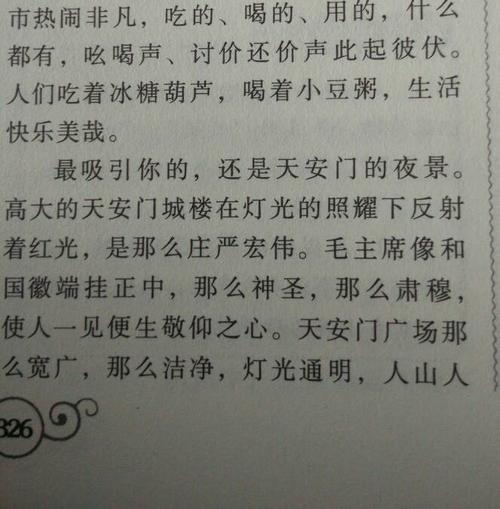 市热闹非凡，吃的、喝的、用的，什么
都有，吆喝声、讨价还价声此起彼伏。
人们吃着冰糖葫芦，喝着小豆粥，生活
快乐美哉。
最吸引你的，还是天安门的夜景。
高大的天安门城楼在灯光的照耀下反射
着红光，是那么庄严宏伟。毛主席像和
国徽端挂正中，那么神圣，那么肃穆，
使人一见便生敬仰之心。天安门广场那
么宽广，那么洁净，灯光通明，人山人
326